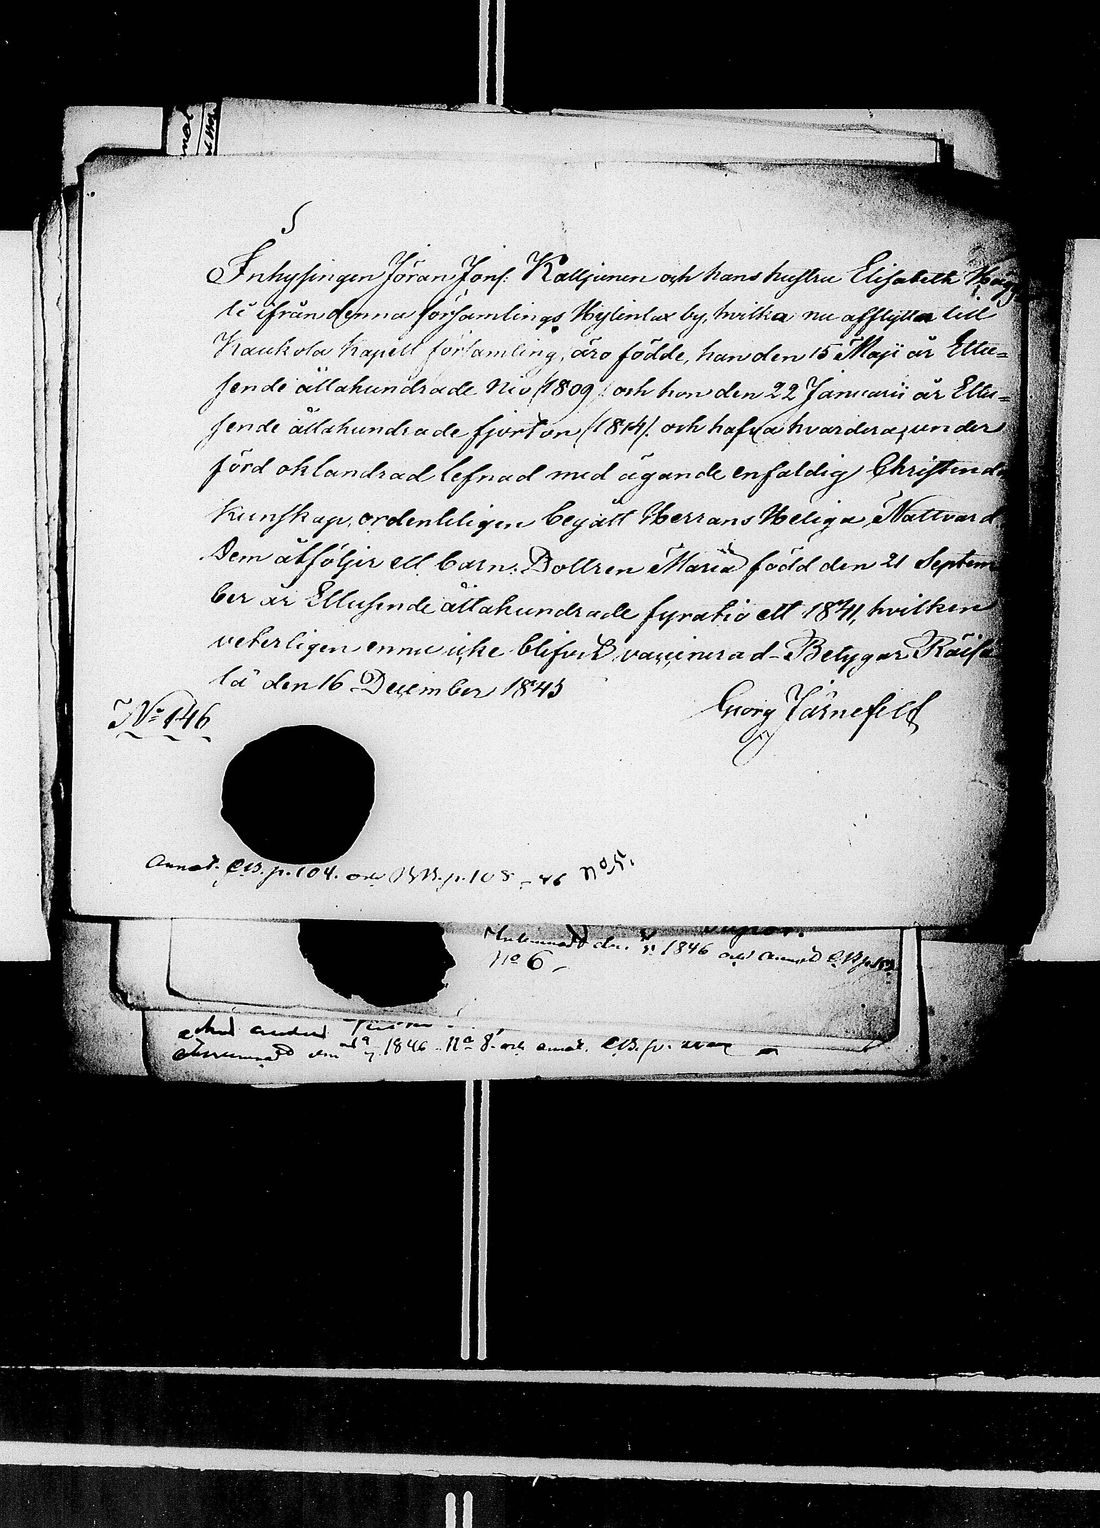 5
Inhysingen Jöran Jons: Kalljunen och hans hustru Elisabeth Häy
tä ifrån denna församlings Kylenlax by, hvilka nu afflytta till
Kaukola Kapell församling, äro födde, han den 15 Maji år Ettu=
sende åttahundrade Nio (1809) och hon den 22 Januarii år Ettu=
sende åttahundrade fjorton (1814). och hafva hvardera, under
förd oklandrad lefnad med ägande enfaldig Christendo
Kunskap, ordentligen begått Herrans Heliga Nattvard.
Dem åtföljer ett barn: Dottren Maria född den 21 Septem
ber år Ettusende åttahundrade fyratio ett 1841, hvilken
veterligen ennu icke blifvit vaccinerad - Betygar Räisä
lä den 16 December 1845
Georg Järnefelt
No 146
Annot. CB. p. 104. och BB. p. 108 - 46 No 5.
1846 och annot
No 6.
1846. No 8. och annot. CB. p.